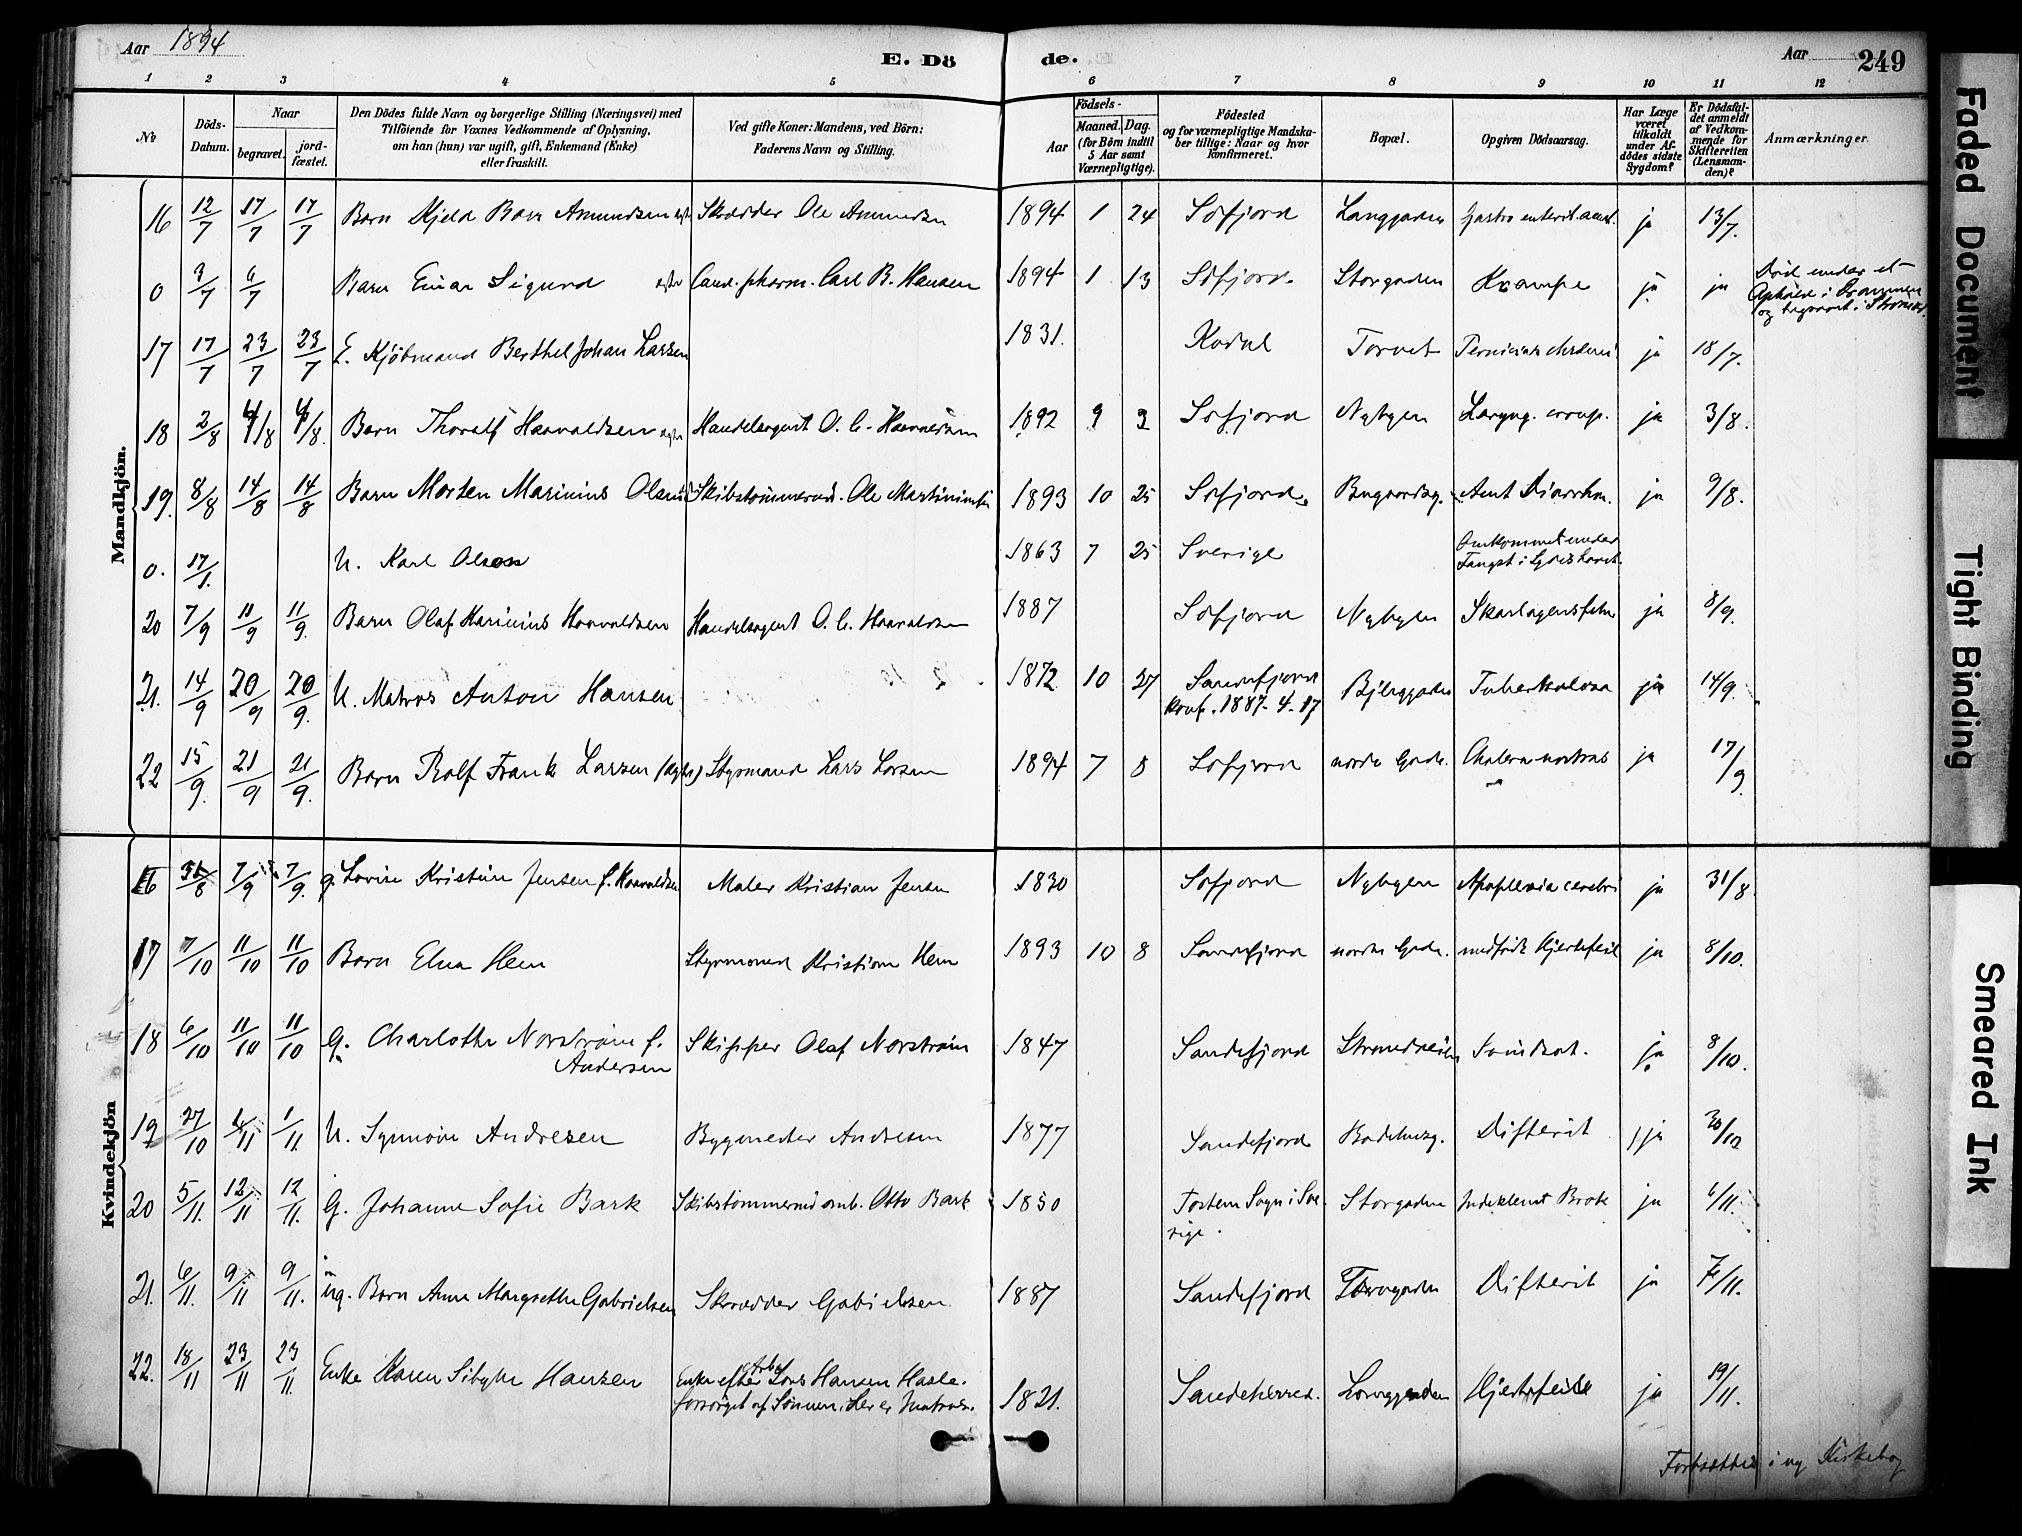 Aar 1894
E. Dö
de.
Aar
249
1 2 3 4 5 6 7 8 9 10 11 12
No
Döds-Datum.
Naar
begravet.
jord-fæstet.
Den Dödes fulde Navn og borgerlige Stilling (Næringsvei) med
Tilföiende for Voxnes Vedkommende af Oplysning,
om han (hun) var ugift, gift, Enkemand (Enke)
eller fraskilt.
Ved gifte Koner: Mandens, ved Börn:
Faderens Navn og Stilling.
Födsels-
Aar
Maaned. Dag.
(for Börn indtil
5 Aar samt
Værnepligtige).
Födested
og for værnepligtige Mandska-
ber tillige: Naar og hvor
konfirmeret.
Bopæl.
Opgiven Dödsaarsag.
Har Læge
været
tilkaldt
under Af-
dödes sidste
Sygdom?
Er Dödsfal-
det anmeldt
af Vedkom-
mende for
Skifteretten
(Lensman-
den)?
Anmærkninger.
Mandkjön.
16 12/7 17/7 17/7 Barn Kjeld Amundsen Skrædder Ole Amundsen 1894 1 24 Sdfjord Langgaden Gastro enterit acut. ja 13/7.
0 3/7 6/7 Barn Einar Sigurd Cand. pharm. Carl B. Hansen 1894 1 13 Sdfjord. Storgaden Krampe ja ja Död under et
Ophold i Drammen
og begravet i
17 17/7 23/7 23/7 E. Kjöbmand Berthel Johan Larsen 1831. Kodal Torvet ja 18/7.
18 2/8 4/8 4/8. Barn Thoralf Haavaldsen Handelsagent O. C. 1892 9 9 Sdfjord Nybyen Laryng. croup. ja 3/8.
19. 8/8 14/8 14/8 Barn Morten Marinius Olsen Skibstömmermd. Ole 1893 10 25 Sdfjord. Acut Diarrhoe. ja 9/8.
0. 17/1. U. Karl Olsson 1863 7 25 Sverige Omkommet under
Fangst i
20 7/9 11/9 11/9. Barn Olaf Marinius Haavaldsen Handelsagent O. C. Haavaldsen 1887 Sdfjord Nybyen Skarlagensfeber ja 8/9.
21. 14/9 20/9 20/9. U. Matros Anton Hansen 1872 10 27 Sandefjord
konf. 1887-4-17 Bjerggaden Tuberkulose ja 14/9.
22 15/9. 21/9 21/9. Barn Rolf Frank Larsen (ægte) Styrmand Lars Larsen 1894 7 8 Sdfjord nordre Gade. Cholera nostras ja 17/9
Kvindekjön
16 31/8 7/9 7/9. g. Lovise Kristine Jensen f. Haavaldsen Maler Kristian Jensen 1830 Sdfjord Nybyen Apoplexia cerebri ja 31/8.
17 7/10 11/10 11/10 Barn Elna Hem Styrmand Kristian Hem 1893 10 8 Sandefjord nordre Gade. medfödt Hjertefeil ja 8/10.
18 6/10 11/10 11/10 G. Charlotte Norström f.
Andersen Skipper Olaf Norström 1847 Sandefjord ja. 8/10.
19 27/10 1/11 1/11. U. Synnöve Andresen Bygmester Andresen 1877 Sandefjord Badehusg. Difterit ja 30/10
20 5/11. 12/11 12/11. G. Johanne Sofie Bark Skibstömmermd Otto Bark 1850 Sogn i Sve-
rige. Storgaden Indeklemt Brok ja 6/11.
21. 6/11. 9/11 9/11. ug. Barn Anne Margrethe Gabrielsen Skrædder Gabrielsen 1887 Sandefjord Difterit ja 7/11.
22. 18/11 23/11 23/11. Enke Karen Sibylle Hansen Enke efter Lars Hansen Hasle.
forsörget af Sönnen. 1821. Sandeherred. Langgaden Hjertefeil ja 19/11.
Fortsættes i ny Kirkebog
Faded Document
Tight Binding
Smeared Ink